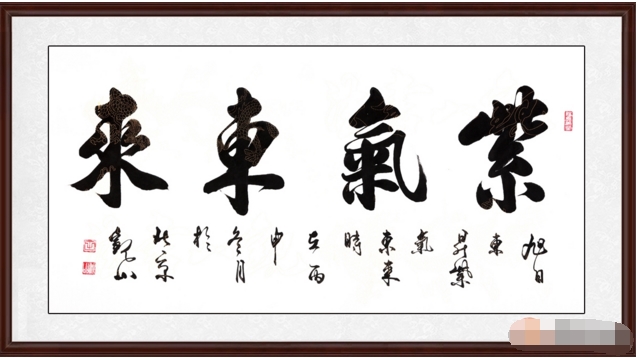 紫氣東來
旭日東昇紫氣東來時在丙申冬月於北京